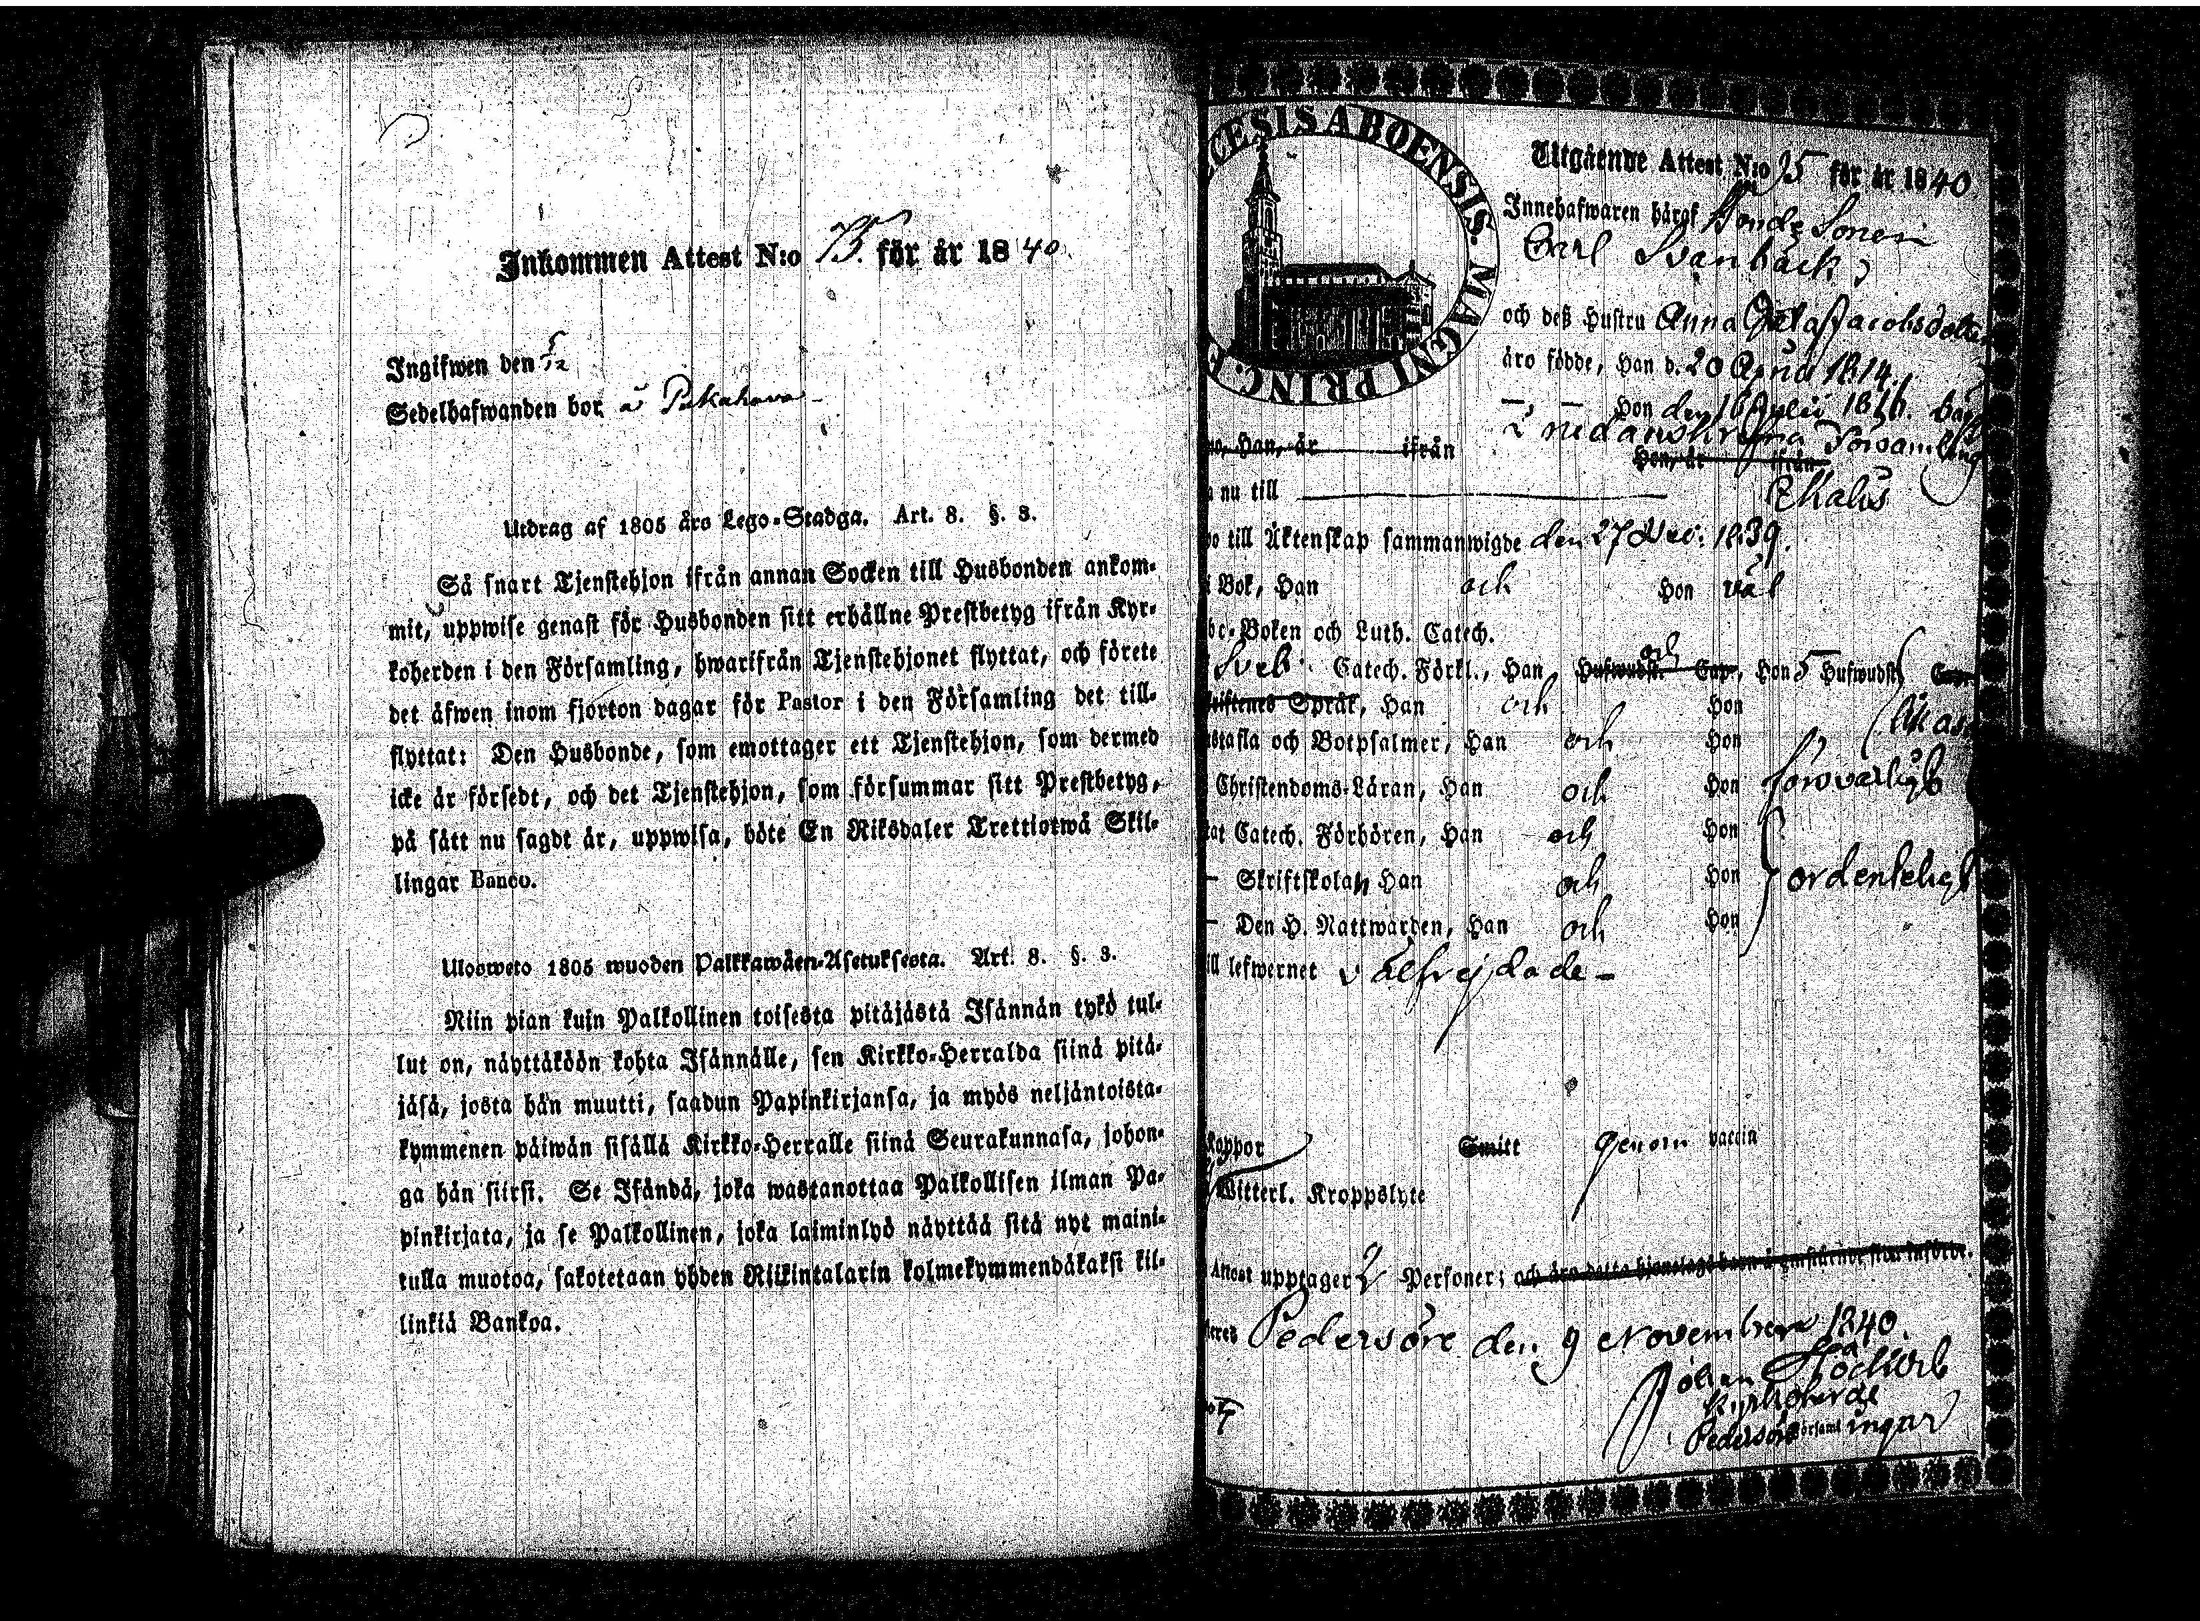 Inkommen Attest N:o 75. för år 1840.
Ingifwen den 5/12
Sedelhafwanden bor å
Utdrag af 1805 åro Lego-Stadga. Art. 8. §. 3.
Så snart Tjenstehjon ifrån annan Socken till Husbonden ankom-
mit, uppwise genast för Husbonden sitt erhållne Prestbetyg ifrån Kyr-
koherden i den Församling, hwarifrån Tjenstehjonet flyttat, och förete
det äfwen inom fjorton dagar för Pastor i den Församling det till-
flyttat: Den Husbonde, som emottager ett Tjenstehjon, som dermed
icke är försedt, och det Tjenstehjon, som försummar sitt Prestbetyg,
på sätt nu sagdt är, uppwisa, böte En Riksdaler Trettiotwå Skil-
lingar Banco.
Ulosweto 1805 wuoden Palkkawäen-Asetuksesta. Art. 8. §. 3.
Niin pian kuin Palkollinen toisesta pitäjästä Isännän tykö tul-
lut on, näyttäköön kohta Isännälle, sen Kirkko-Herralda siinä pitä-
jäsä, josta hän muutti, saadun Papinkirjansa, ja myös neljäntoista-
kymmenen päiwän sisällä Kirkko-Herralle siinä Seurakunnasa, johon-
ga hän siirsi. Se Isändä, joka wastanottaa Palkollisen ilman Pa-
pinkirjata, ja se Palkollinen, joka laiminlyö näyttää sitä nyt maini-
tulla muotoa, sakotetaan yhden Riikintalarin kolmekymmendäkaksi kil-
linkiä Bankoa.
CESIS ABOENSIS. MAGNI PRINC. F
Utgående Attest N:o 95 för år 1840
Innehafwaren häraf Bonde Sonen
Carl Svanbäck,
och deß Hustru Anna Greta Jacobsdotter
äro födde, Han d. 20 April 1814.
Hon den 16 Julii 1816.
i nedanskrefna Församling
Han, är ifrån
Hon, är ifrån
nu till
till Äktenskap sammanwigde den 27 Dec: 1839.
i Bok, Han och Hon väl
bc-Boken och Luth. Catech.
Sveb. Catech. Förkl., Han och Hufwudst. Cap., Hon 5 Hufwudst. Cap.
Skriftenes Språk, Han och Hon
Hustafla och Botpsalmer, Han och Hon
Christendoms-Läran, Han och Hon försvarligt
Catech. Förhören, Han och Hon
Skriftskolan Han och Hon ordenteligt
Den H. Nattwarden, Han och Hon
till lefwernet välfrejdade
koppor Smitt genom vaccin
Witterl. Kroppslyte
Attest upptager 2 Personer; och äro detta hjonelags barn å
Pedersöre den 9 November 1840.
Johan
Kyrkoherde
Pedersöre Församlingar